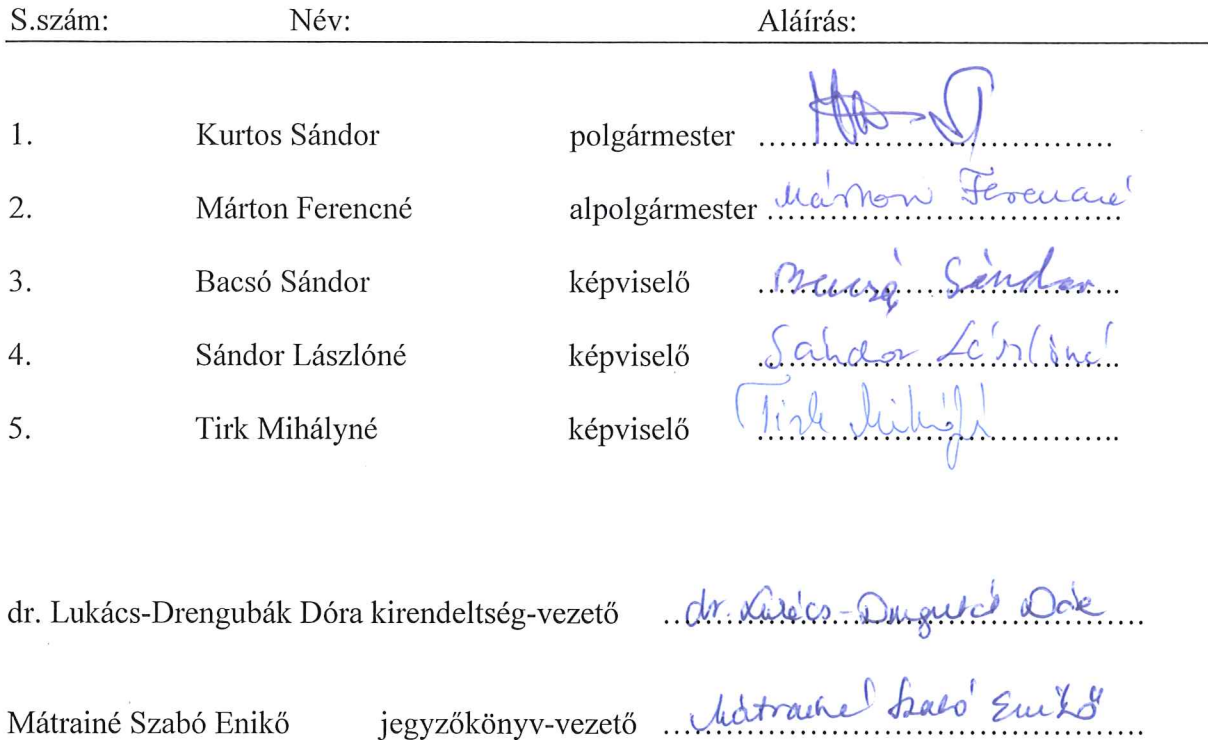 S.szám: Név: Aláírás:
1. Kurtos Sándor polgármester ....................................
2. Márton Ferencné alpolgármester Márton Ferencné
3. Bacsó Sándor képviselő Bacsó Sándor
4. Sándor Lászlóné képviselő Sándor Lászlóné
5. Tirk Mihályné képviselő Tirk
dr. Lukács-Drengubák Dóra kirendeltség-vezető dr. Lukács-Drengubák Dóra
Mátrainé Szabó Enikő jegyzőkönyv-vezető Mátrainé Szabó Enikő